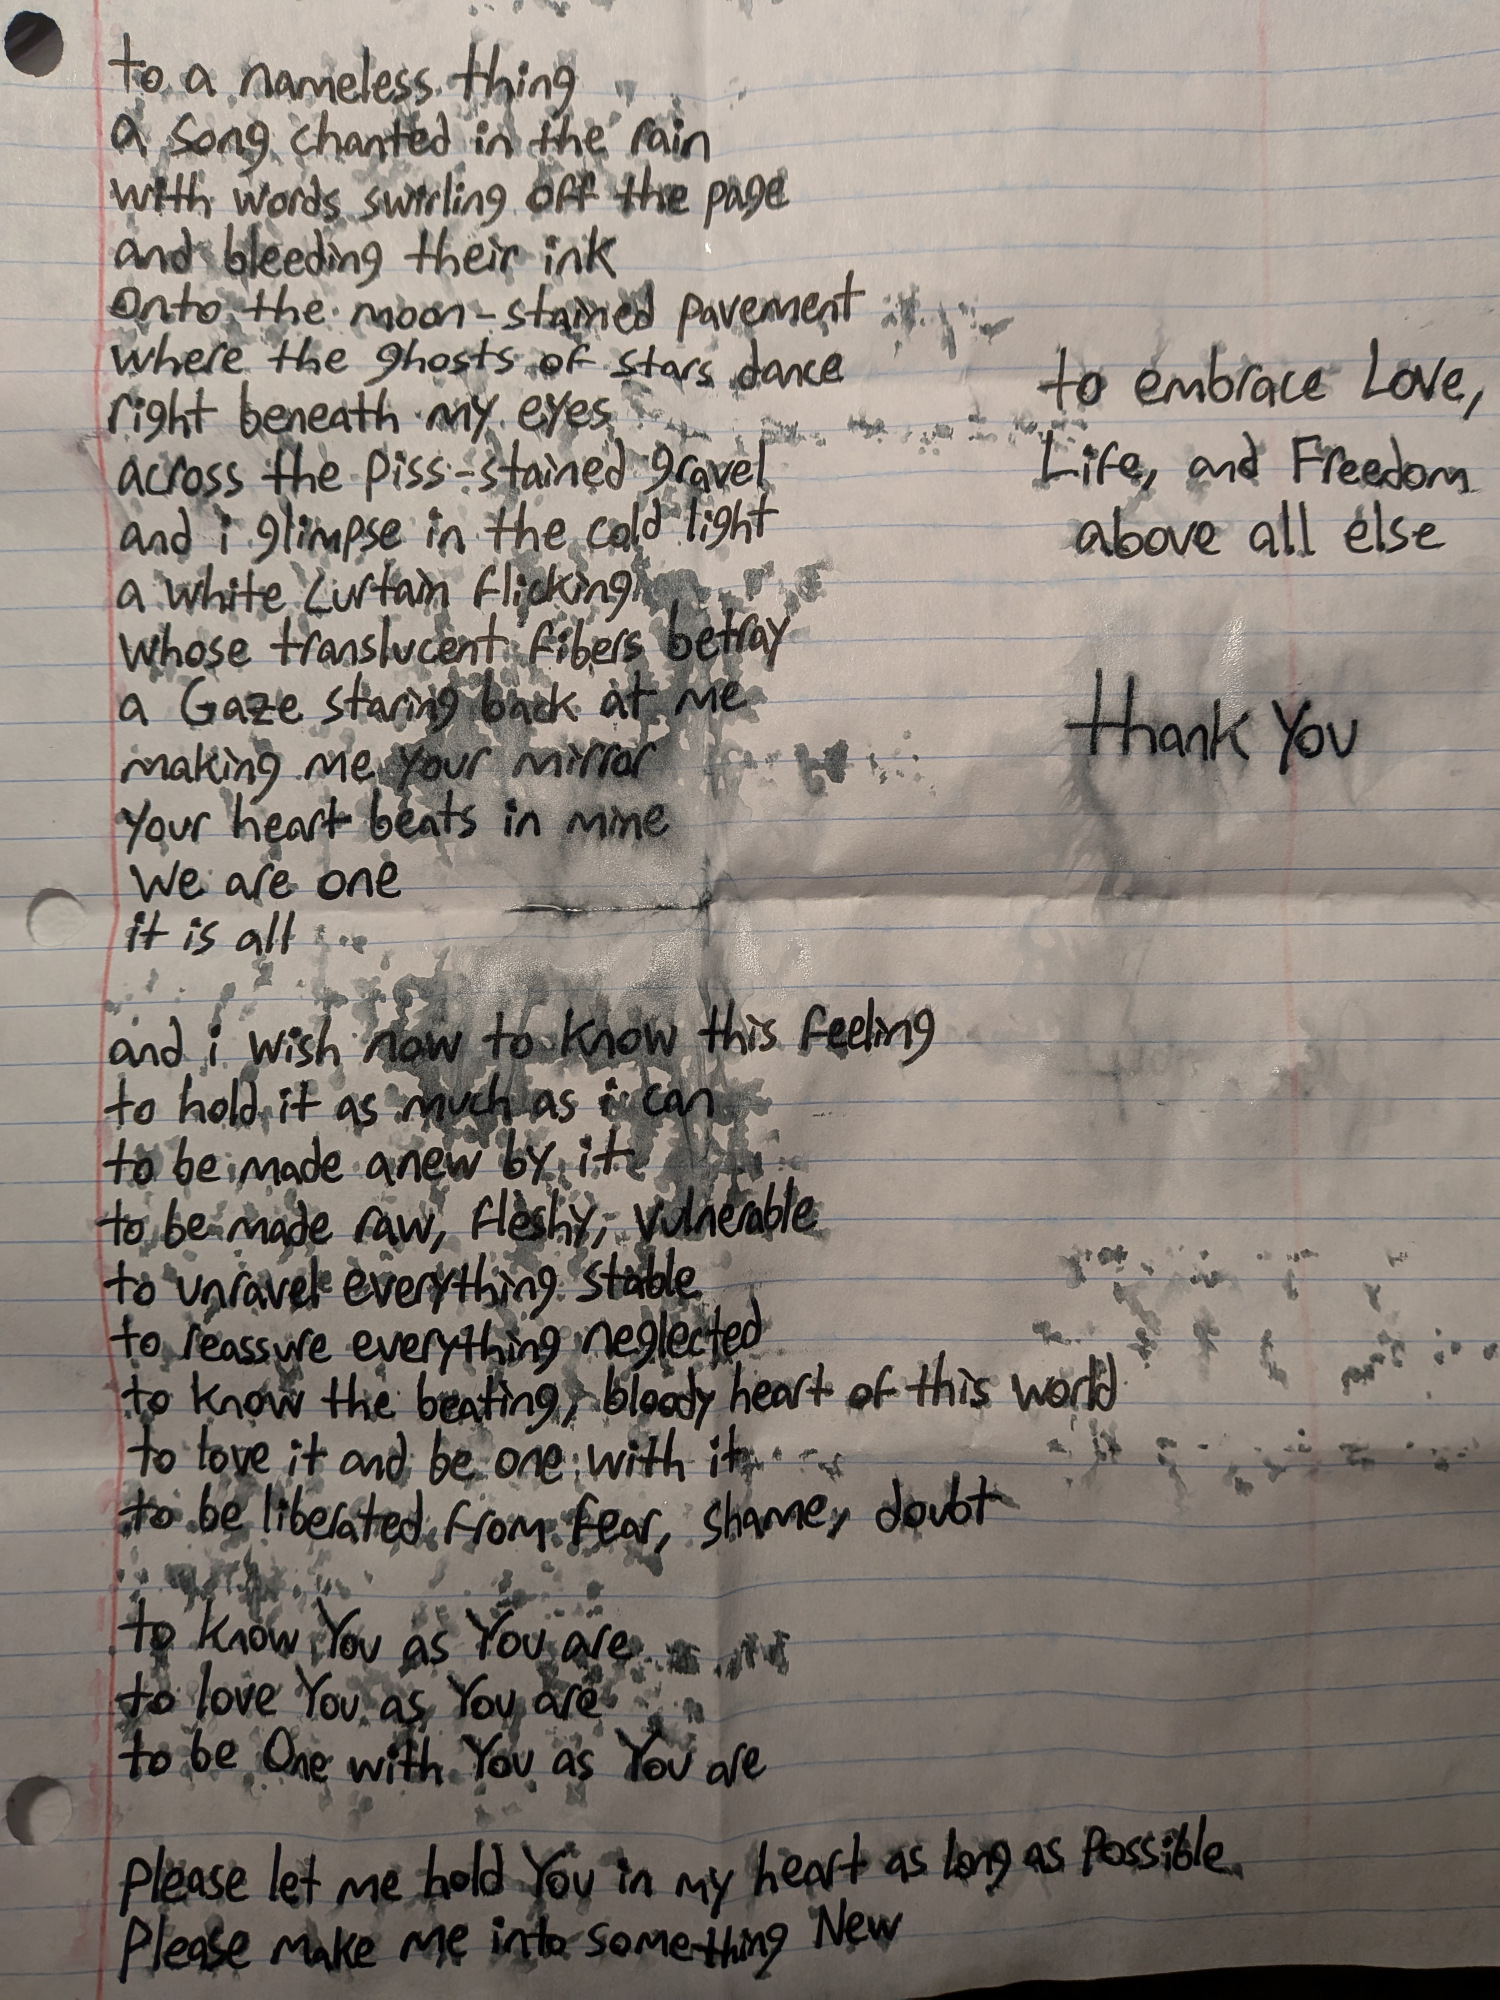 to a nameless thing
a song chanted in the rain
with words swirling off the page
and bleeding their ink
onto the moon-stained pavement
where the ghosts of stars dance
right beneath my eyes
across the piss-stained gravel
and i glimpse in the cold light
a white curtain flicking
whose translucent fibers betray
a Gaze staring back at me
making me your mirror
your heart beats in mine
we are one
it is all
and i wish now to know this feeling
to hold it as much as i can
to be made anew by it
to be made raw, fleshy, vulnerable
to unravel everything stable
to reassure everything neglected
to know the beating, bloody heart of this world
to love it and be one with it
to be liberated from fear, shame, doubt
to know You as You are
to love You as You are
to be One with You as You are
Please let me hold You in my heart as long as possible
Please make me into something New
to embrace Love,
Life, and Freedom
above all else
thank You